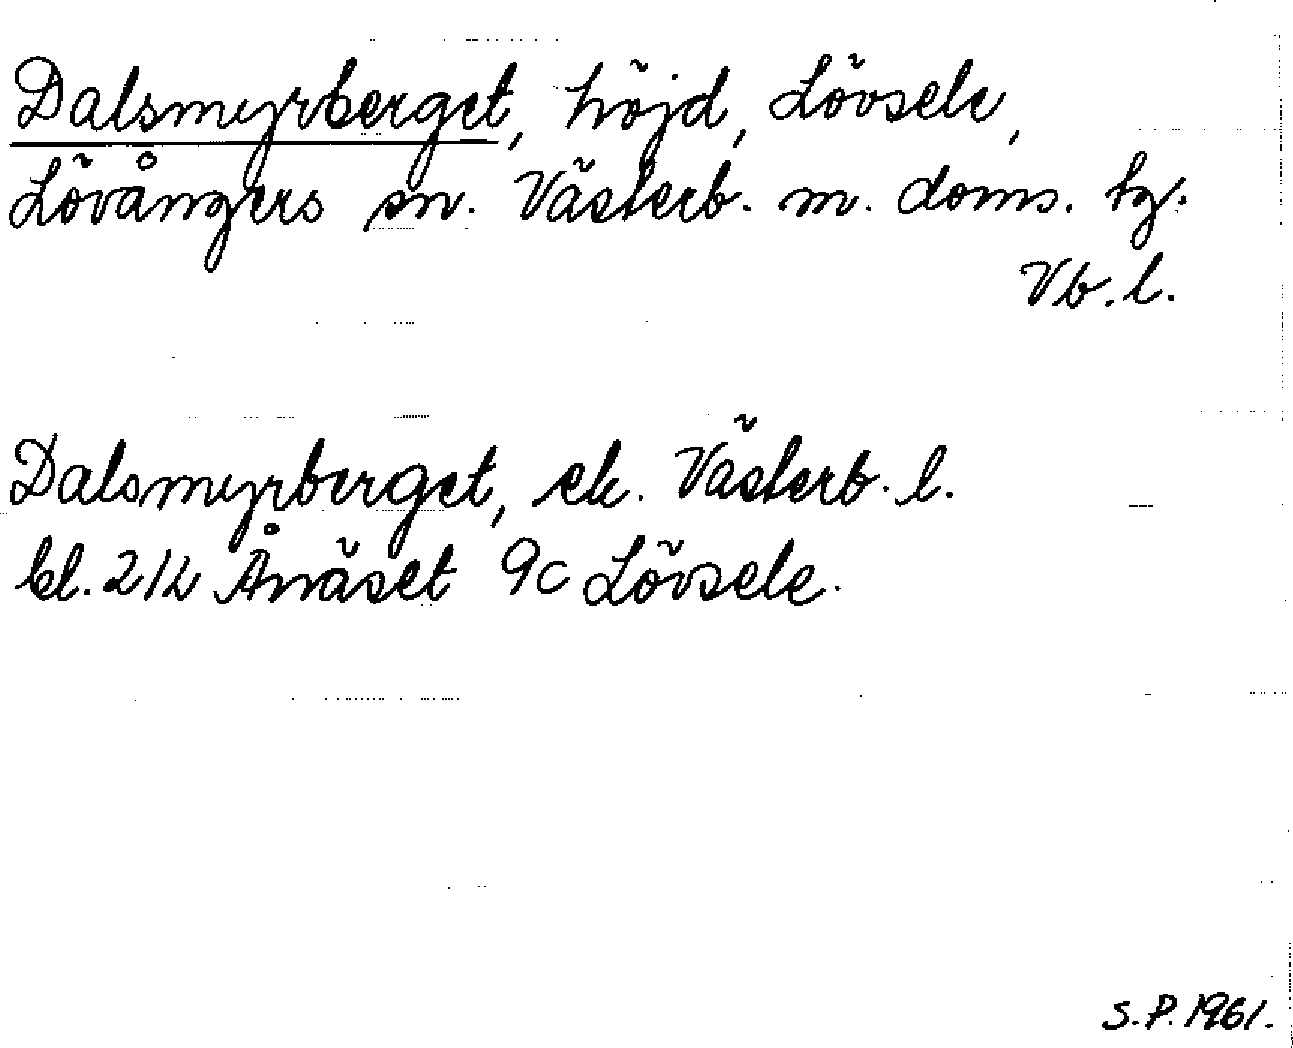 Dalsmyrberget, höjd, Lövsele,
Lövångers sn. Västerb. m. doms. tg.
Vb. l.
Dalsmyrberget, ek. Västerb. l.
bl. 212 Ånäset 9c Lövsele.
S.P. 1961.